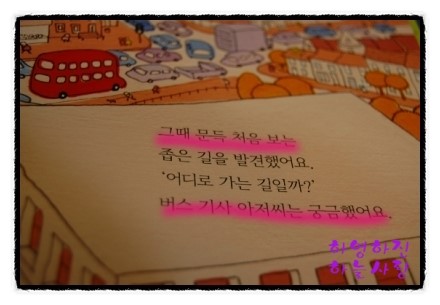 그때 문득 처음 보는
좁은 길을 발견했어요.
'어디로 가는 길일까?'
버스 기사 아저씨는 궁금했어요.